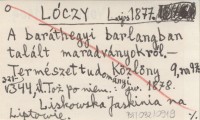 LÓCZY Lajos 1877.
A baráthegyi barlangban
talált maradványokról.—
Természettudományi Közlöny 9, m 92
321-
v344, Tot. po niem. giv. 1878.
Liskowska Jaskinia na
Liptowie.